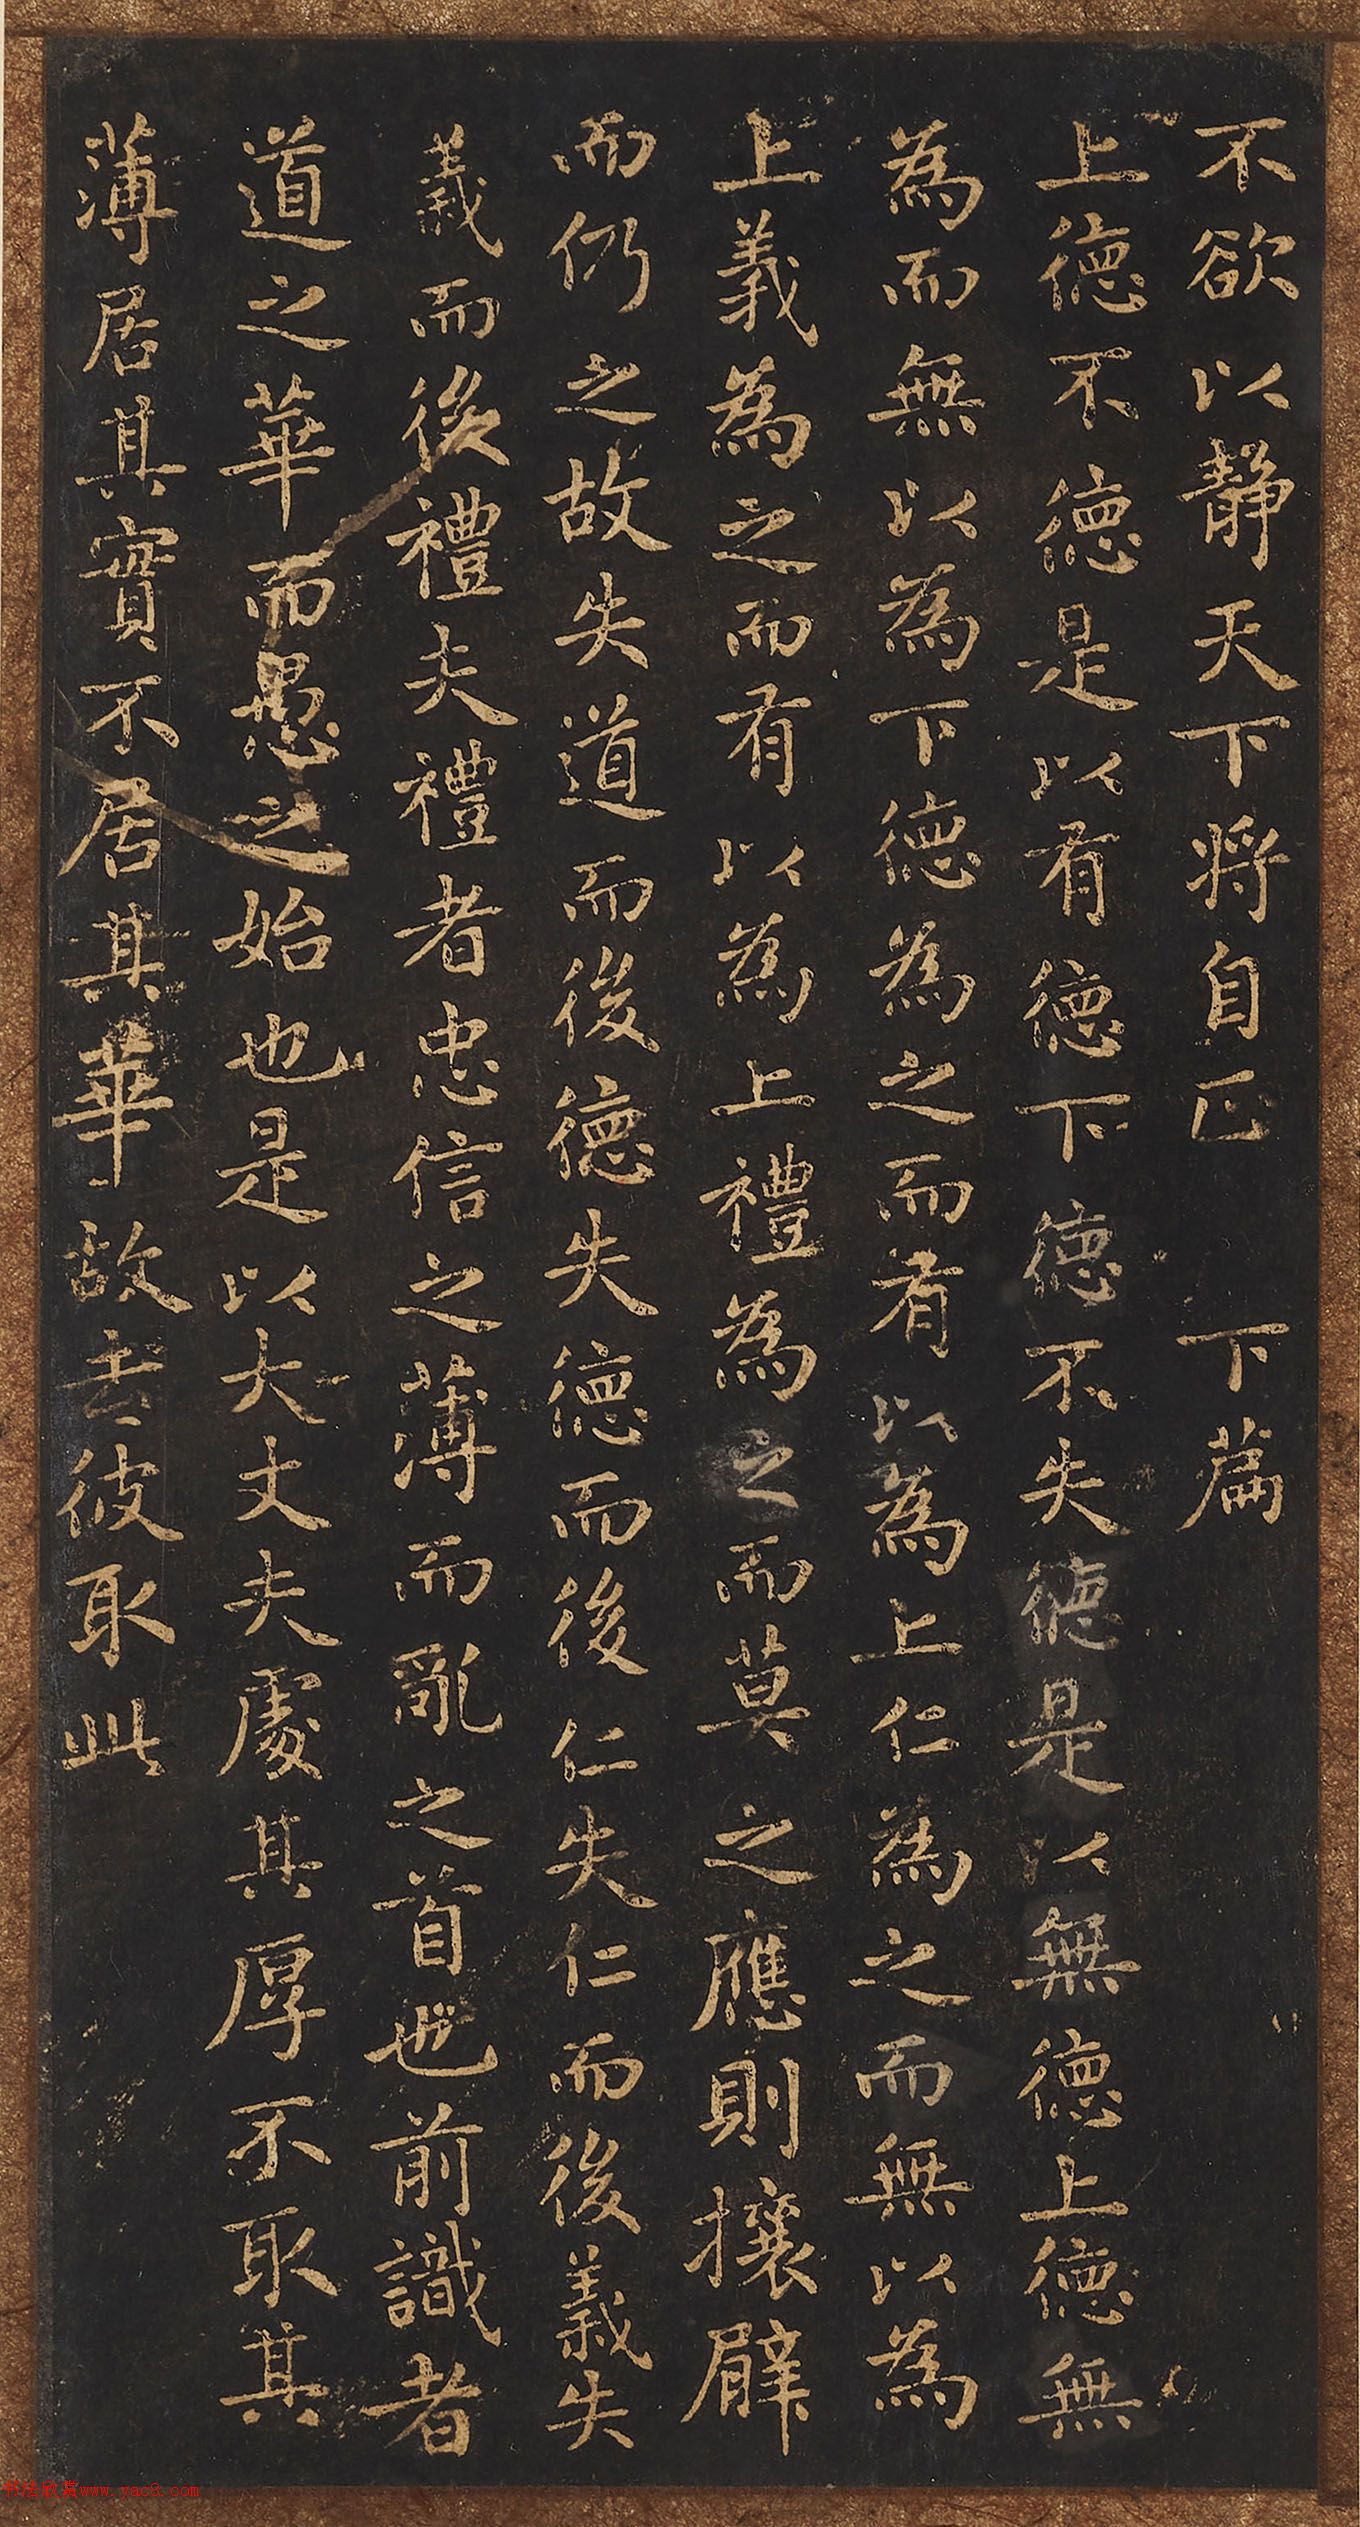 不欲以静天下将自正　下篇
上德不德是以有德下德不失德是以無德上德無
為而無以為下德為之而有以為上仁為之而無以為
上義為之而有以為上禮為之而莫之應則攘臂
而仍之故失道而後德失德而後仁失仁而後義失
義而後禮夫禮者忠信之薄而亂之首也前識者
道之華而愚之始也是以大丈夫處其厚不取其
薄居其實不居其華故去彼取此
书法欣赏www.yac8.com